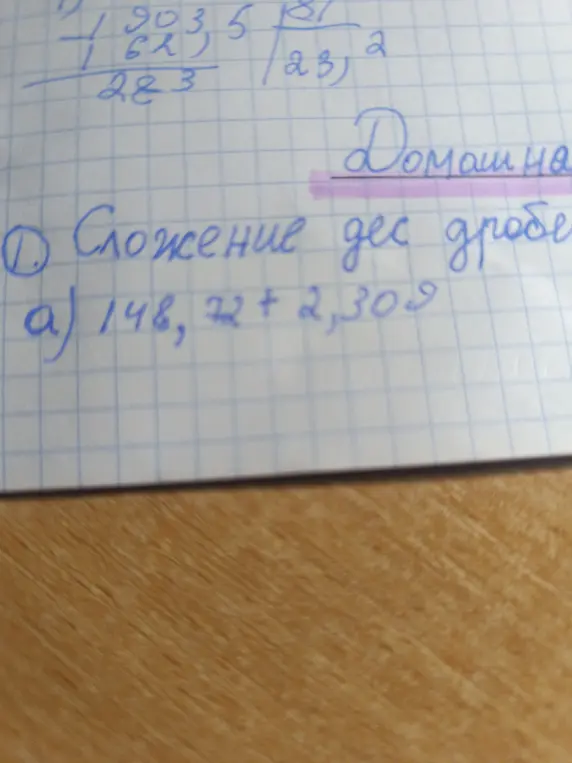 1903,5 81
- 162, 23,2
283
Домашна
1. Сложение дес дробе
а) 148,72 + 2,309